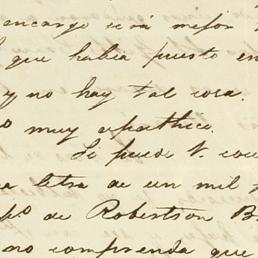 encargo será mejor
que había puesto en
y no hay tal cosa.
muy apathico.
Si puede V.
letra de un mil
po de Robertson B
no comprenda que